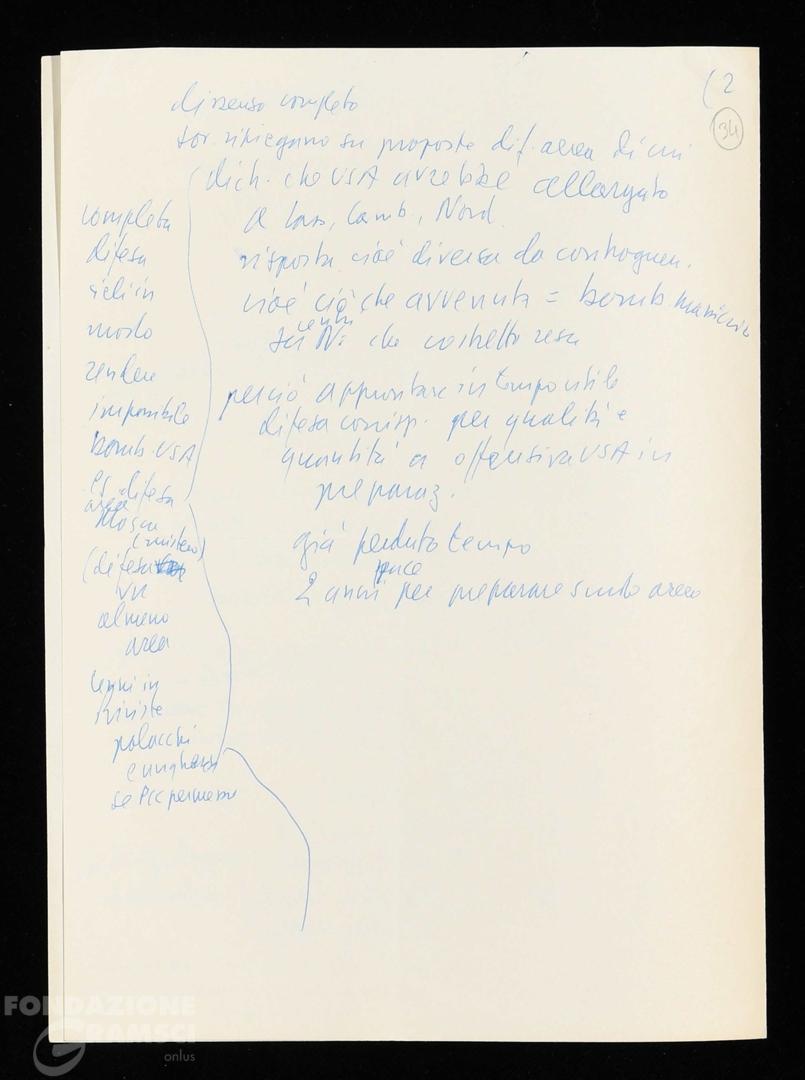 (2
34
dissenso completo
sov. ripiegano su proposte dif. aerea di cui
dich. che USA avrebbe allargato
a Laos, Camb., Nord
risposta cioè diversa da controguer.
cioè ciò che avvenuta = bomb. massiccio
su centri N. che costretto resa
perciò approntare in tempo utile
difesa corrisp. per qualità e
quantità a offensiva USA in
preparaz.
già perduto tempo
2 anni pace per preparare scudo aereo
completa
difesa
cieli in
modo
rendere
impossibile
bomb. USA
es. difesa
area
Mosca
(mistero)
(difesa
VN
almeno
area
cenni in
riviste
polacchi
e ungheresi
se PCC permesse
FONDAZIONE
GRAMSCI
onlus